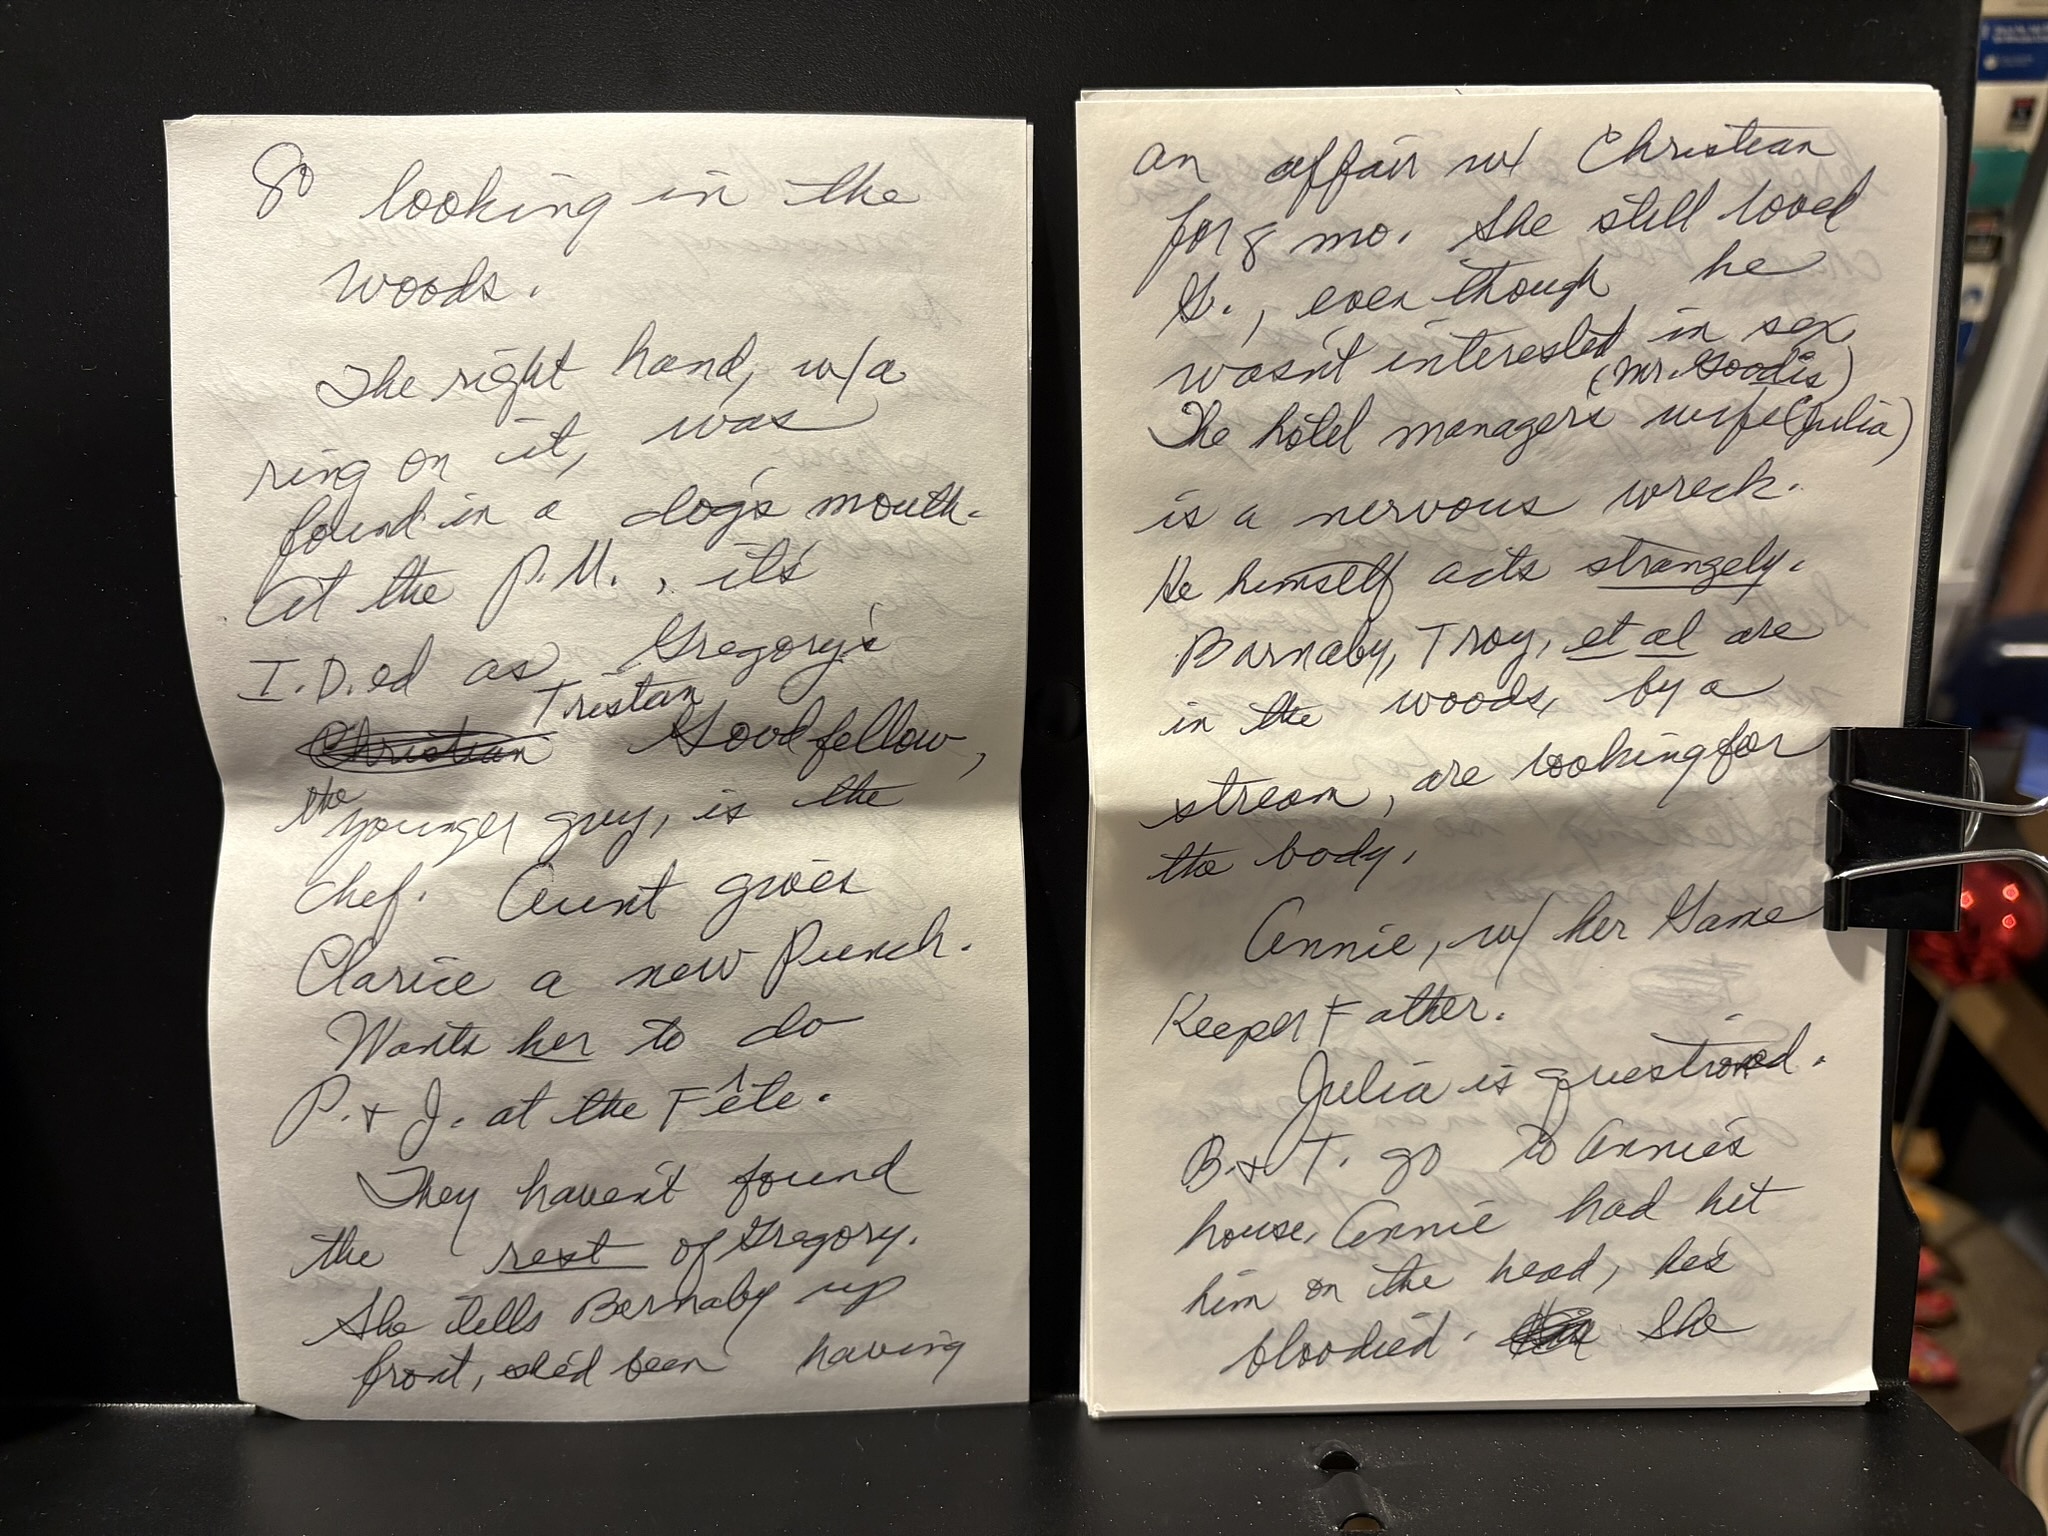 go looking in the
woods.
The right hand, w/a
ring on it, was
found in a dog's mouth.
At the P.M., it's
I.D.ed as Gregory's
Christian Tristan Goodfellow,
the younger guy, is the
chef. Aunt gives
Clarice a new Punch.
Wants her to do
P. & J. at the Fête.
They haven't found
the rest of Gregory.
She tells Barnaby up
front, she'd been having
an affair w/ Christian
for 8 mo. She still loved
G., even though he
wasn't interested in sex.
(Mr. Goodis)
The hotel manager's wife (Julia)
is a nervous wreck.
He himself acts strangely.
Barnaby, Troy, et al are
in the woods, by a
stream, are looking for
the body.
Annie, w/ her Game
Keeper Father.
Julia is questioned.
B. & T. go to Annie's
house. Annie had hit
him on the head, he's
bloodied. She